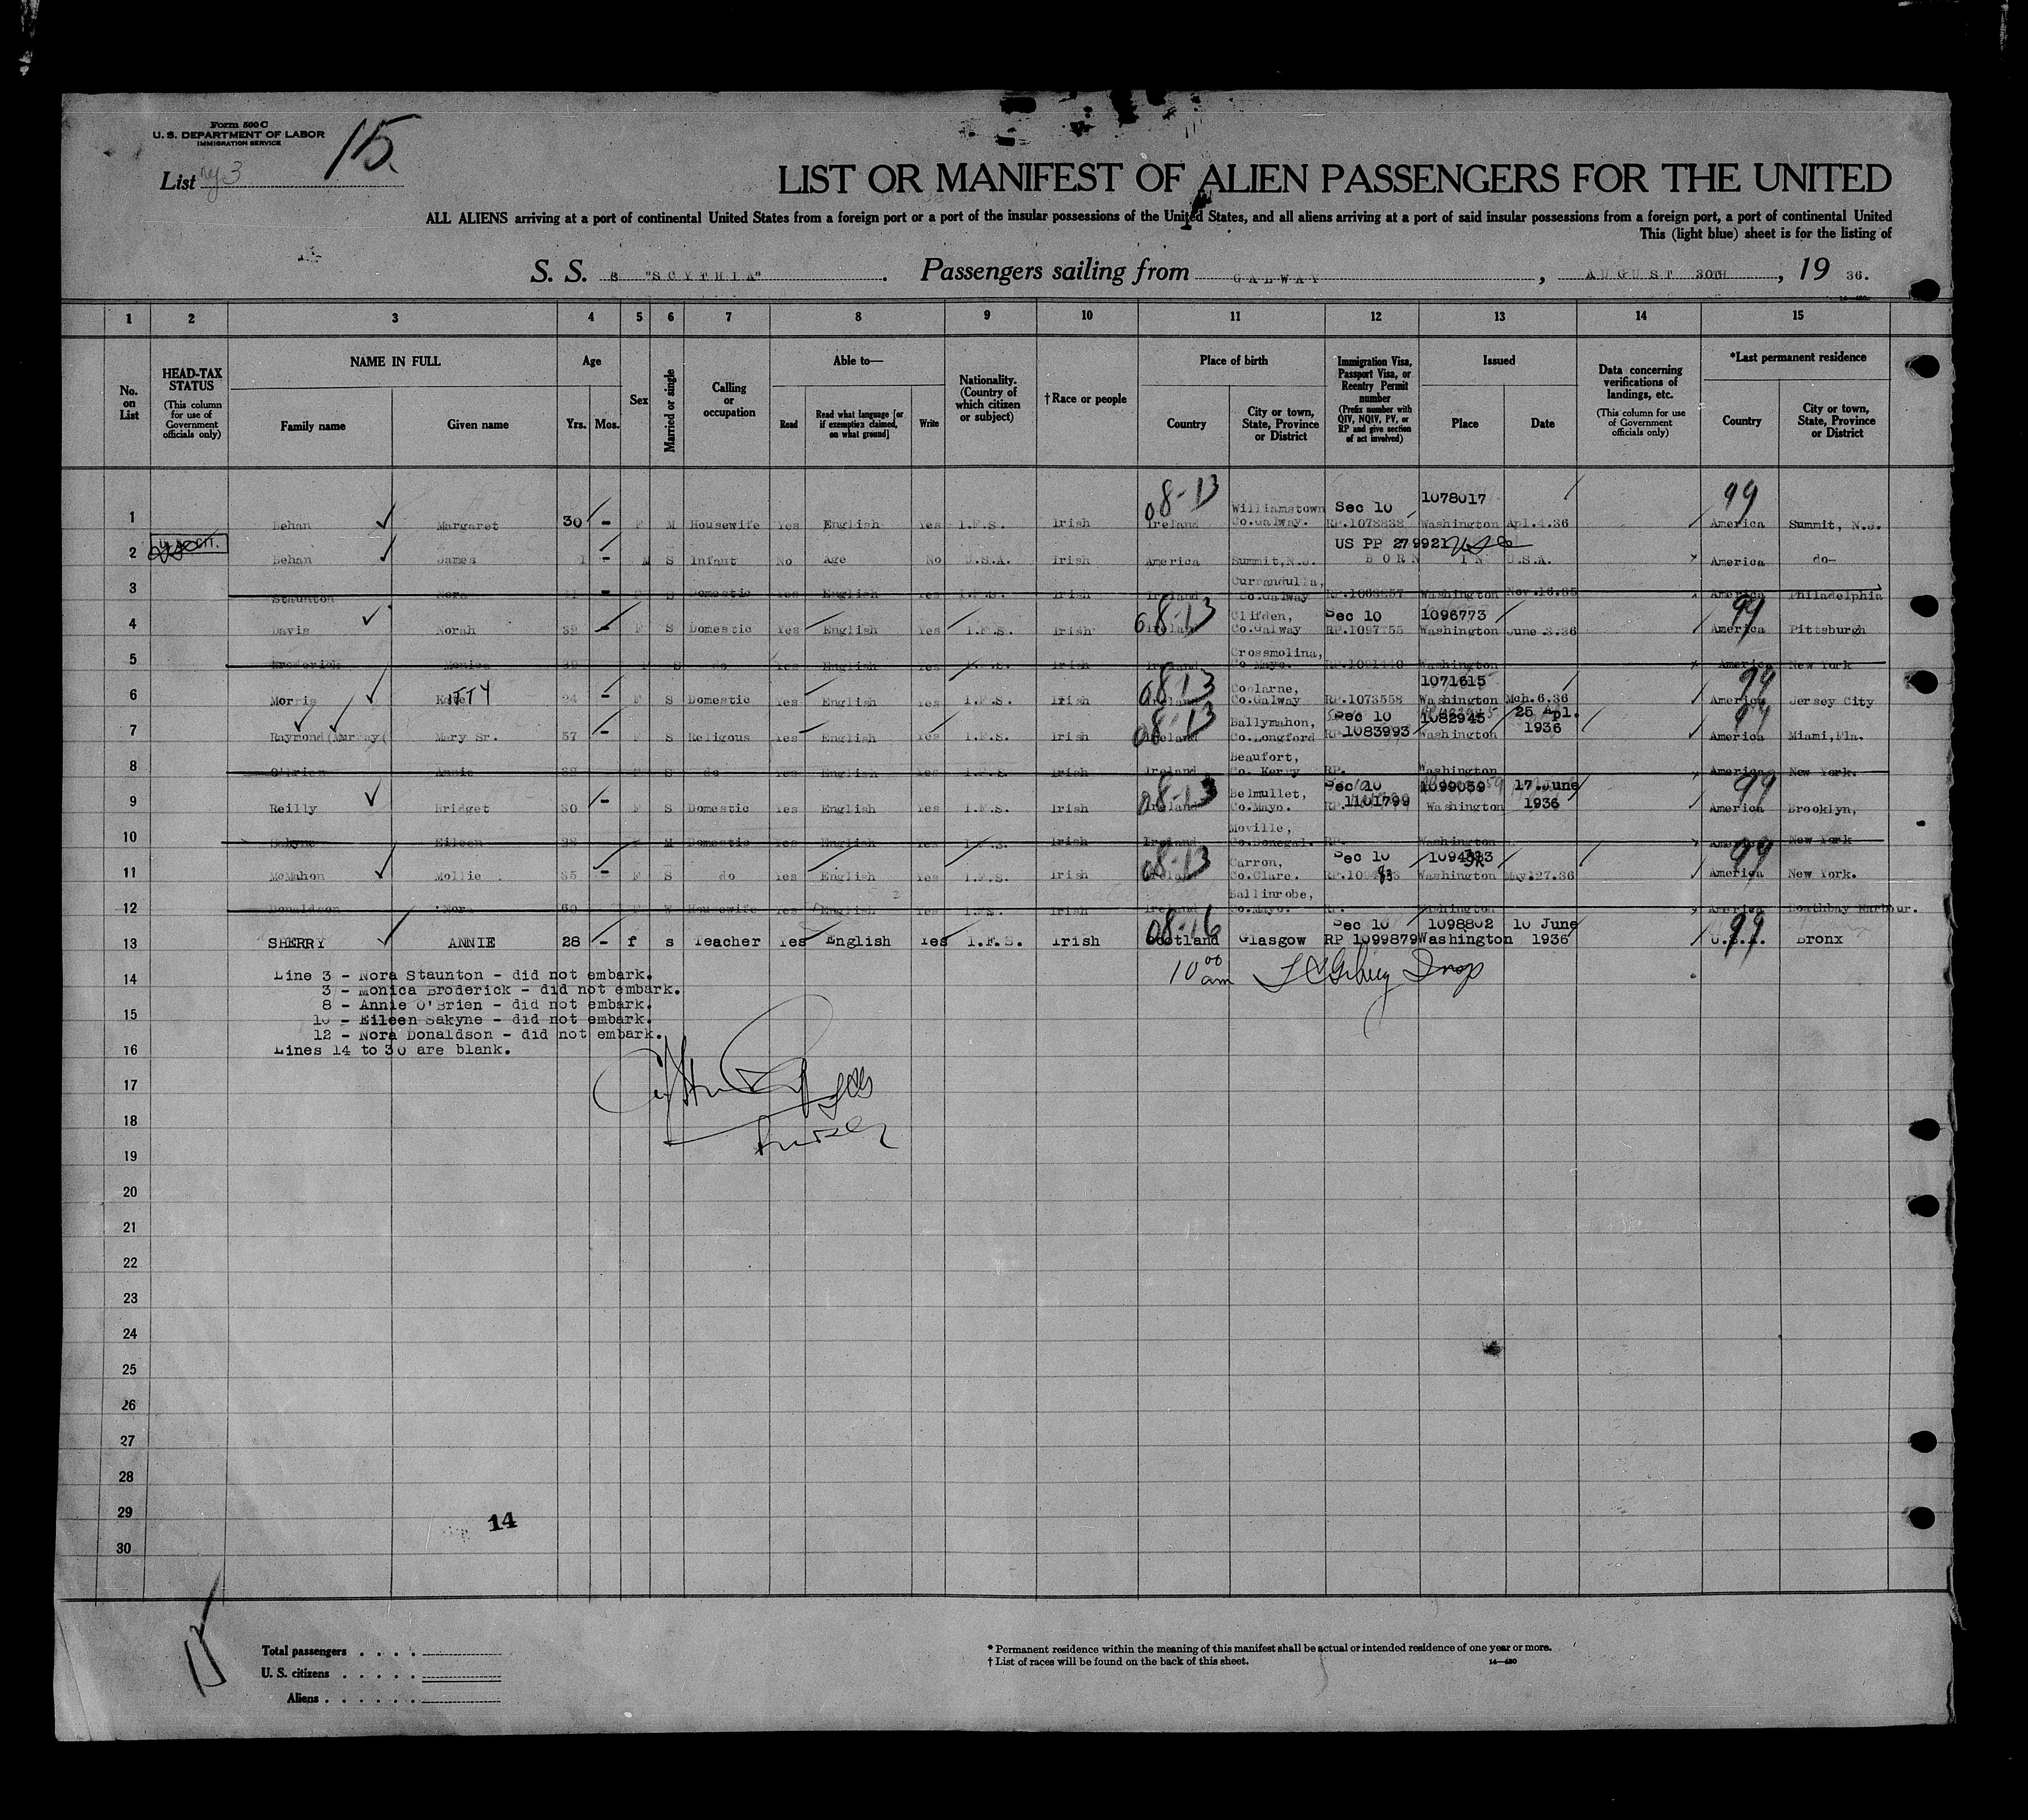 Form 500 C
U. S. DEPARTMENT OF LABOR
IMMIGRATION SERVICE
15.
List 3
LIST OR MANIFEST OF ALIEN PASSENGERS FOR THE UNITED
ALL ALIENS arriving at a port of continental United States from a foreign port or a port of the insular possessions of the United States, and all aliens arriving at a port of said insular possessions from a foreign port, a port of continental United
This (light blue) sheet is for the listing of
S. S. "SCYTHIA" . Passengers sailing from GALWAY , AUGUST 30TH , 19 36.
1 2 3 4 5 6 7 8 9 10 11 12 13 14 15
No. on List
HEAD-TAX STATUS (This column for use of Government officials only)
NAME IN FULL Family name Given name
Age Yrs. Mos.
Sex
Married or single
Calling or occupation
Able to— Read Read what language [or if exemption claimed, on what ground] Write
Nationality. (Country of which citizen or subject)
†Race or people
Place of birth Country City or town, State, Province or District
Immigration Visa, Passport Visa, or Reentry Permit number (Prefix number with QIV, NQIV, PV, or RP and give section of act involved)
Issued Place Date
Data concerning verifications of landings, etc. (This column for use of Government officials only)
*Last permanent residence Country City or town, State, Province or District
08-13 Williamstown Sec 10 1078017 99
1 Lehan Margaret 30 - F M Housewife Yes English Yes I.F.S. Irish Ireland Co.Galway. RP.1078838 Washington Apl.4.36 America Summit, N.J.
US PP 279921 USC
2 Lehan James 1 - M S Infant No Age No U.S.A. Irish America Summit,N.J. BORN IN U.S.A. America do-
Currandulla,
3 Staunton Nora F S Domestic Yes English Yes I.F.S. Irish Ireland Co.Galway Washington Nov.16.35 America Philadelphia
08-13 Clifden, Sec 10 1096773 99
4 Davis Norah 32 - F S Domestic Yes English Yes I.F.S. Irish Ireland Co.Galway RP.1097755 Washington June.3.36 America Pittsburgh
Crossmolina,
5 Broderick Monica F S do Yes English Yes I.F.S. Irish Ireland Co Mayo. Washington America New York
08-13 Coolarne, 1071615 99
6 Morris KITTY 24 - F S Domestic Yes English Yes I.F.S. Irish Ireland Co.Galway RP.1073558 Washington Mch.6.36 America Jersey City
08-13 Ballymahon, Sec 10 1082945 25 Apl. 99
7 Raymond(Murray( Mary Sr. 57 - F S Religous Yes English Yes I.F.S. Irish Ireland Co.Longford RP 1083993 Washington 1936 America Miami,Fla.
Beaufort,
8 O'Brien Annie F S do Yes English Yes I.F.S. Irish Ireland Co. Kerry RP. Washington America New York.
08-13 Belmullet, Sec 10 1099059 17 June 99
9 Reilly Bridget 30 - F S Domestic Yes English Yes I.F.S. Irish Ireland Co.Mayo. RP 1101799 Washington 1936 America Brooklyn,
Moville,
10 Sakyne Eileen M Domestic Yes English Yes I.F.S. Irish Ireland Co.Donegal. RP. Washington America New York
08-13 Carron, Sec 10 99
11 McMahon Mollie 35 - F S do Yes English Yes I.F.S. Irish Ireland Co.Clare. Washington May.27.36 America New York.
Ballinrobe,
12 Donaldson Nora 60 F W Housewife Yes English Yes I.FS. Irish Ireland Co.Mayo. Washington America Boothbay Harbour.
08-16 Sec 10 1098802 10 June 99
13 SHERRY ANNIE 28 - f s Teacher Yes English Yes I.F.S. Irish Scotland Glasgow RP 1099879 Washington 1936 U.S.A. Bronx
10 00 am
Line 3 - Nora Staunton - did not embark.
3 - Monica Broderick - did not embark.
14
8 - Annie O'Brien - did not embark.
15
10 - Eileen Sakyne - did not embark.
12 - Nora Donaldson - did not embark.
16 Lines 14 to 30 are blank.
17
18
19
20
21
22
23
24
25
26
27
28
29
14
30
15
Total passengers . . . .
U. S. citizens . . . . .
Aliens . . . . . .
* Permanent residence within the meaning of this manifest shall be actual or intended residence of one year or more.
† List of races will be found on the back of this sheet.
14—480